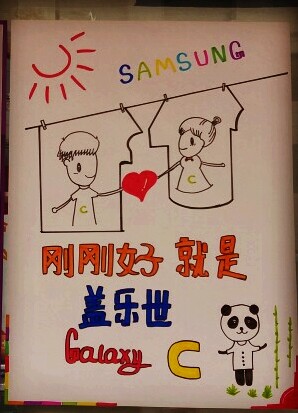 SAMSUNG
C
C
刚刚好 就是
盖乐世
Galaxy C